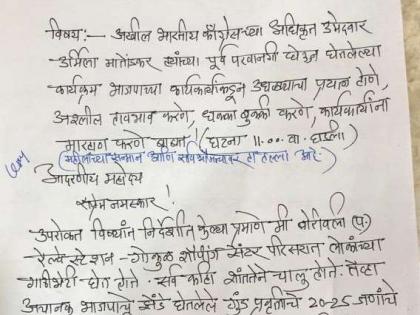 विषय:— अखील भारतीय काँग्रेसच्या अधिकृत उमेदवार
उर्मिला मातोंडकर ह्यांच्या पूर्व परवानगी घेऊन घेतलेल्या
कार्यक्रम भाजपाच्या कार्यकर्त्यांकडून उधळण्याचा प्रयत्न होणे,
अश्लील हावभाव करणे, धक्का बुक्की करणे, कार्यकर्त्यांना
मारहाण करणे बाबत। (घटना ११.०० वा. घडली)
(महिलांच्या सन्मान आणि हा हल्ला आहे.)
आदरणीय महोदय
सप्रेम नमस्कार!
उपरोक्त विषयांत निर्देशीत केल्या प्रमाणे मी बोरिवली (प.)
रेल्वे स्टेशन - गोकुळ शॉपींग सेंटर परिसरात लोकांच्या
गाठीभेटी घेत होते. सर्व काही शांततेने चालू होते. तेव्हा
अचानक भाजपाचे झेंडे घेतलेले गुंड प्रवृत्तीचे २०-२५ जणांचे